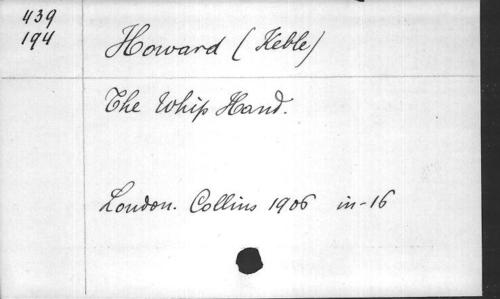 439
194
Howard (Keble)
The Whip Hand.
London. Collins 1906 in-16